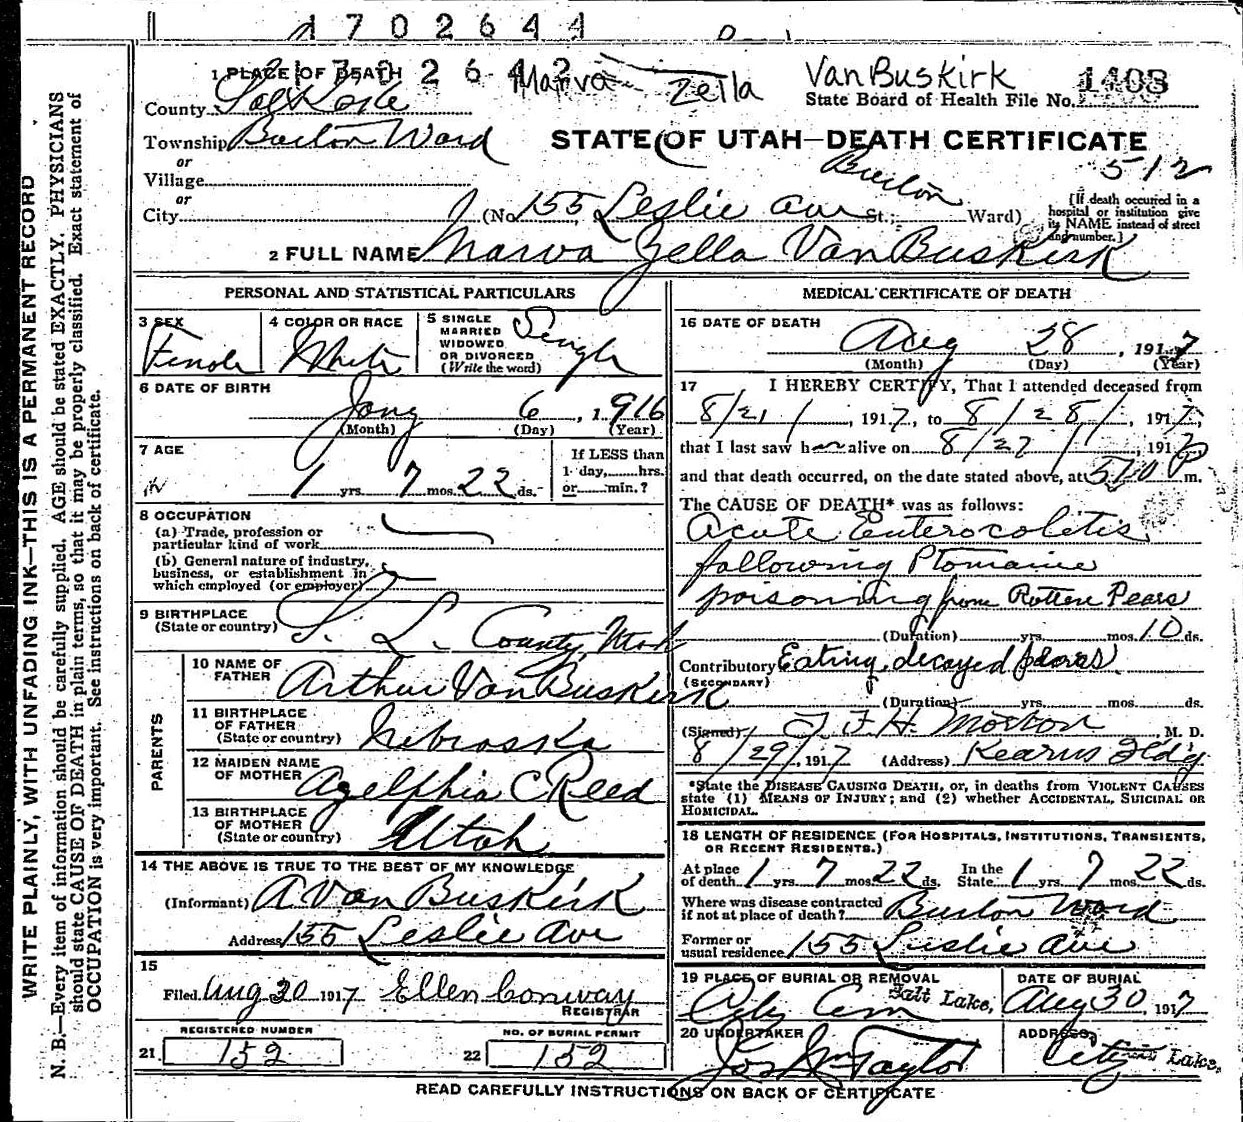 1702644
2 6 4 2 Marva Zella VanBuskirk
1 PLACE OF DEATH
1408
County Salt Lake
State Board of Health File No.
Township Burton Ward
STATE OF UTAH—DEATH CERTIFICATE
or
Village
Burton
512
or
City (No 155 Leslie Ave St.; Ward)
[If death occurred in a
hospital or institution give
its NAME instead of street
and number.]
2 FULL NAME Marva Zella VanBuskirk
PERSONAL AND STATISTICAL PARTICULARS
3 SEX
Female
4 COLOR OR RACE
White
5 SINGLE
MARRIED
WIDOWED
OR DIVORCED
(Write the word)
Single
6 DATE OF BIRTH
Jany 6, 1916
(Month) (Day) (Year)
7 AGE
1 yrs. 7 mos. 22 ds.
If LESS than
1 day, hrs.
or min.?
8 OCCUPATION
(a) Trade, profession or
particular kind of work
(b) General nature of industry,
business, or establishment in
which employed (or employer)
9 BIRTHPLACE
(State or country)
S. L. County, Utah
PARENTS
10 NAME OF
FATHER
Arthur VanBuskirk
11 BIRTHPLACE
OF FATHER
(State or country)
Nebraska
12 MAIDEN NAME
OF MOTHER
Agelphia C Reed
13 BIRTHPLACE
OF MOTHER
(State or country)
Utah
14 THE ABOVE IS TRUE TO THE BEST OF MY KNOWLEDGE
(Informant) A Van Buskirk
Address 155 Leslie Ave
15
Filed Aug 30 1917 Ellen Conway
REGISTRAR
REGISTERED NUMBER
21. 152
NO. OF BURIAL PERMIT
22 152
MEDICAL CERTIFICATE OF DEATH
16 DATE OF DEATH
Aug 28, 1917
(Month) (Day) (Year)
17 I HEREBY CERTIFY, That I attended deceased from
8/21/, 1917, to 8/28/, 1917,
that I last saw her alive on 8/27/, 1917
and that death occurred, on the date stated above, at 510 P m.
The CAUSE OF DEATH* was as follows:
Acute Enterocolitis
following Ptomaine
poisoning from Rotten Pears
(Duration) yrs. mos. 10 ds.
Contributory Eating decayed
(SECONDARY)
(Duration) yrs. mos. ds.
(Signed) T. F. H. Morton, M. D.
8/29/, 1917 (Address) Kearns Bldg
*State the DISEASE CAUSING DEATH, or, in deaths from VIOLENT CAUSES
state (1) MEANS OF INJURY; and (2) whether ACCIDENTAL, SUICIDAL OR
HOMICIDAL.
18 LENGTH OF RESIDENCE (FOR HOSPITALS, INSTITUTIONS, TRANSIENTS,
OR RECENT RESIDENTS.)
At place
of death 1 yrs. 7 mos. 22 ds.
In the
State 1 yrs. 7 mos. 22 ds.
Where was disease contracted
if not at place of death? Burton Ward
Former or
usual residence 155 Leslie Ave
19 PLACE OF BURIAL OR REMOVAL
City Cem Salt Lake,
DATE OF BURIAL
Aug 30, 1917
20 UNDERTAKER
Jos Wm Taylor
ADDRESS
City Salt Lake,
READ CAREFULLY INSTRUCTIONS ON BACK OF CERTIFICATE
WRITE PLAINLY, WITH UNFADING INK—THIS IS A PERMANENT RECORD
N. B.—Every item of information should be carefully supplied. AGE should be stated EXACTLY. PHYSICIANS
should state CAUSE OF DEATH in plain terms, so that it may be properly classified. Exact statement of
OCCUPATION is very important. See instructions on back of certificate.